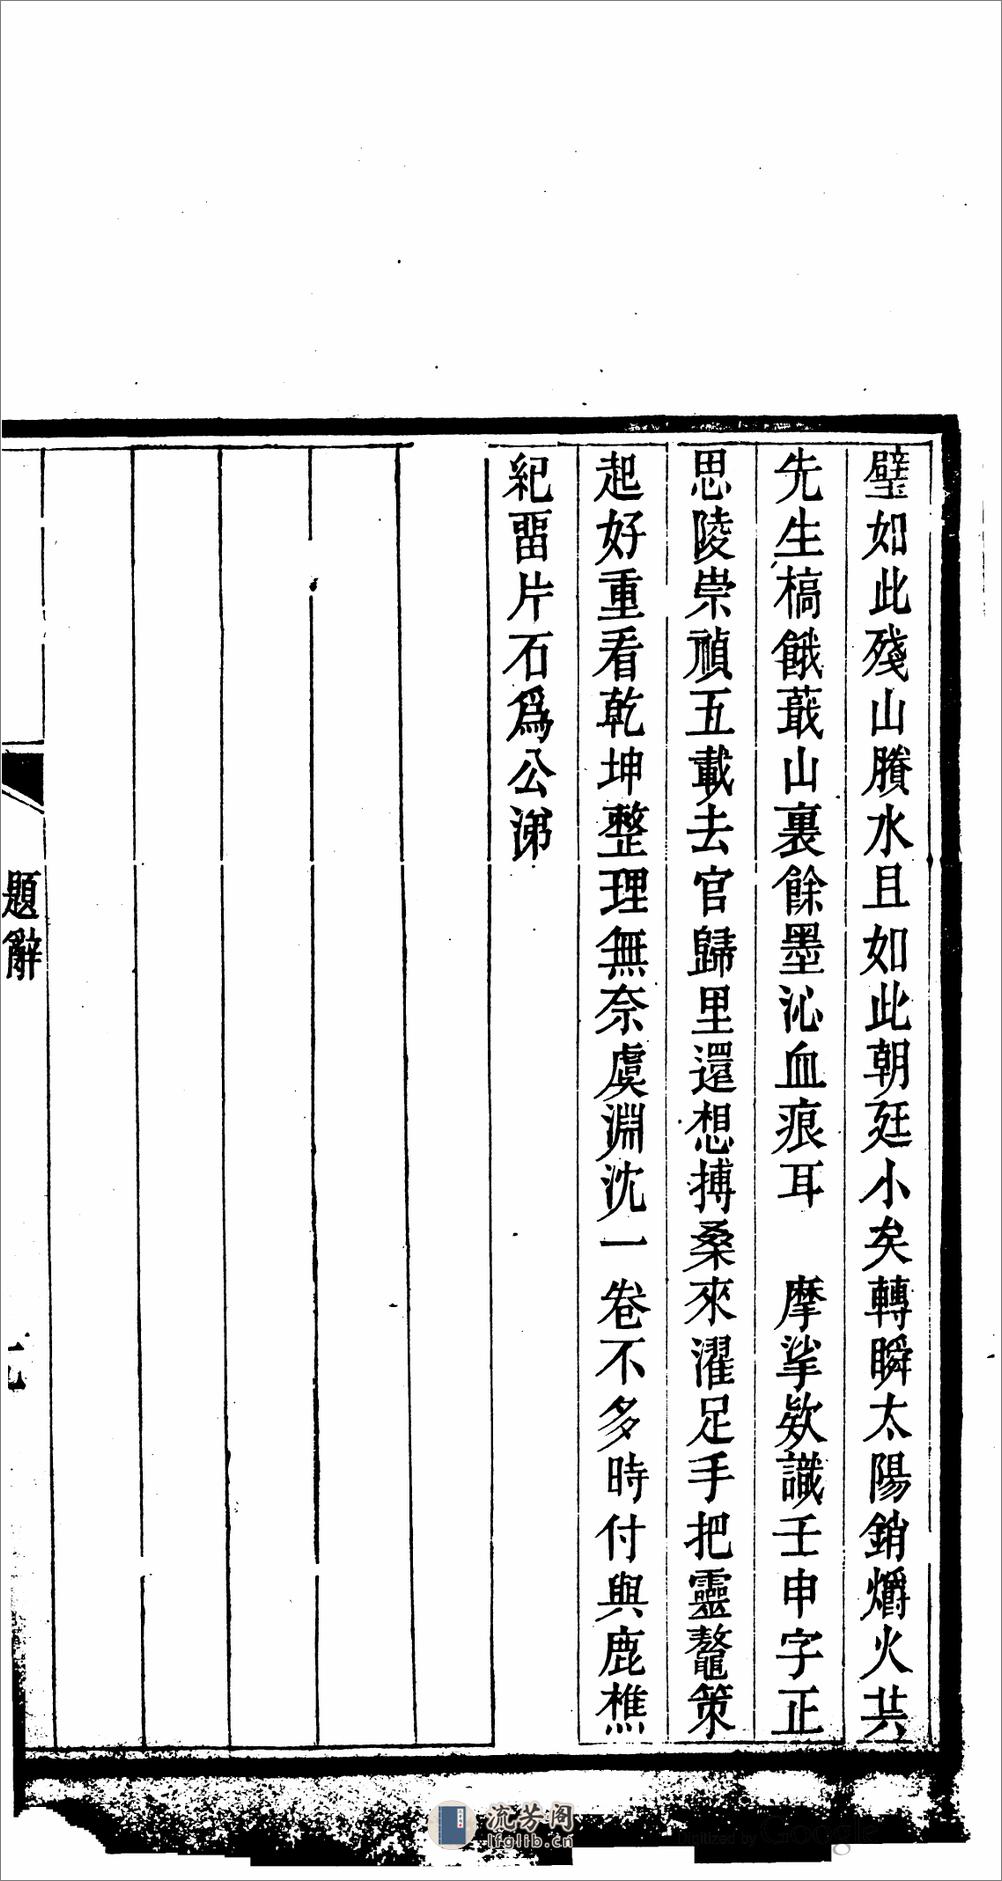 璧如此殘山賸水且如此朝廷小矣轉瞬太陽銷爝火共
先生槁餓蕺山裏餘墨沁血痕耳　摩挲欵識壬申字正
思陵崇禎五載去官歸里還想搏桑來濯足手把靈鼇策
起好重看乾坤整理無奈虞淵沈一卷不多時付與鹿樵
紀畱片石爲公涕
題辭
流芳阁
lfglib.cn
Digitized by Google